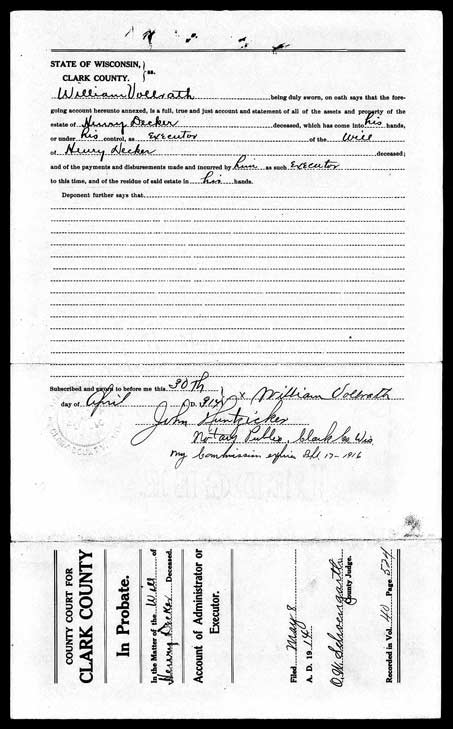 STATE OF WISCONSIN,
CLARK COUNTY. } ss.
William Vollrath being duly sworn, on oath says that the fore-
going account hereunto annexed, is a full, true and just account and statement of all of the assets and property of the
estate of Henry Decker deceased, which has come into his hands,
or under his control, as Executor of the Will
of Henry Decker deceased;
and of the payments and disbursements made and incurred by him as such Executor
to this time, and of the residue of said estate in his hands.
Deponent further says that
Subscribed and sworn to before me this 30th
day of April A. D. } x William Vollrath
John Huntzicker
Notary Public, Clark Co. Wis.
My Commission expires 17-1916
COUNTY COURT FOR
CLARK COUNTY
In Probate.
In the Matter of the Will of
Henry Decker Deceased.
Account of Administrator or
Executor.
Filed May 8
A. D. 1914
O.W. Schoengarth
County Judge.
Recorded in Vol. 40 Page 524